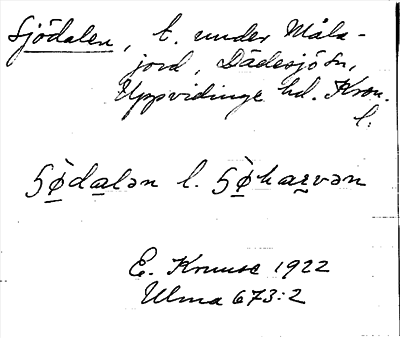 Sjödalen, t. under Måla-
jord, Dädesjö sn,
Uppvidinge hd. Kron.
l.
Sø̀dalən l. Sø̀harvən
E. Kruuse 1922
Ulma 673:2